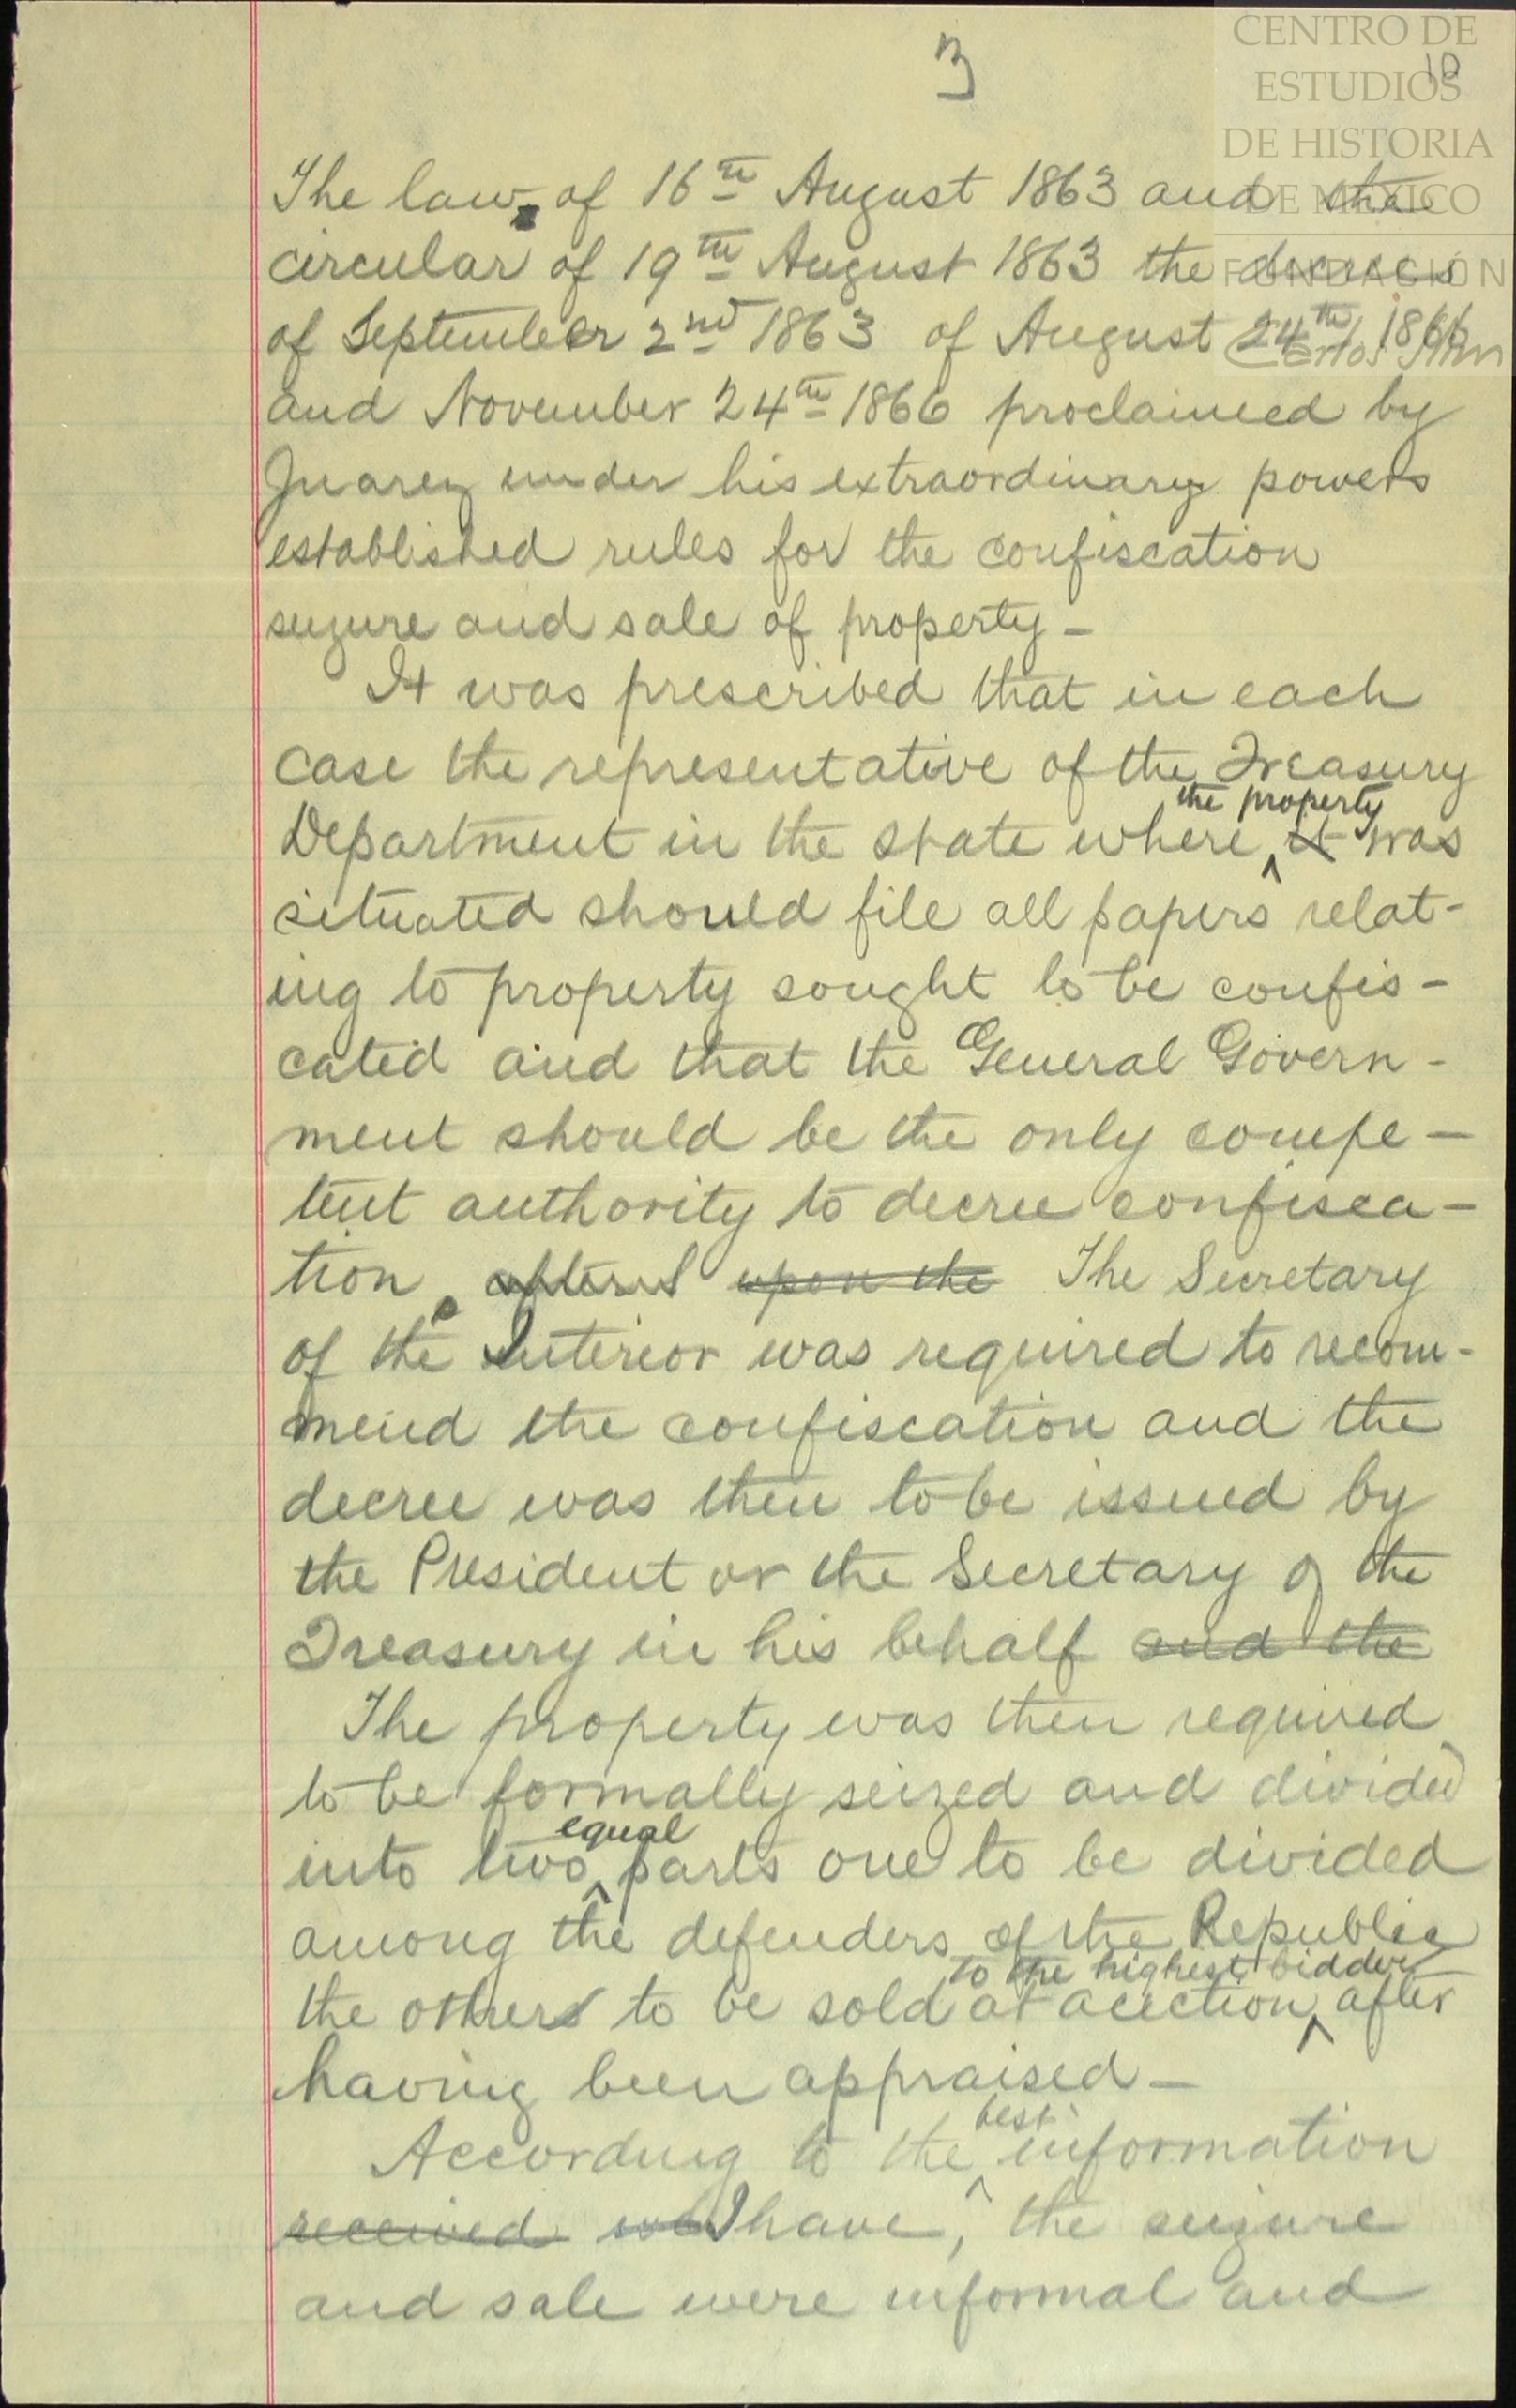 3
10
CENTRO DE
ESTUDIOS
DE HISTORIA
DE MÉXICO
FUNDACIÓN
Carlos Slim
The law of 16th August 1863 and the
circular of 19th August 1863 the decrees
of September 2nd 1863 of August 24th 1866
and November 24th 1866 proclaimed by
Juarez under his extraordinary powers
established rules for the confiscation
seizure and sale of property –
It was prescribed that in each
case the representative of the Treasury
the property
Department in the state where it was
situated should file all papers relat-
ing to property sought to be confis-
cated and that the General Govern-
ment should be the only compe-
tent authority to decree confisca-
tion. upon the The Secretary
of the Interior was required to recom-
mend the confiscation and the
decree was then to be issued by
the President or the Secretary of the
Treasury in his behalf and the
The property was then required
to be formally seized and divided
equal
into two parts one to be divided
among the defenders of the Republic
to the highest bidder
the other to be sold at auction after
having been appraised –
best
According to the information
received we I have, the seizure
and sale were informal and